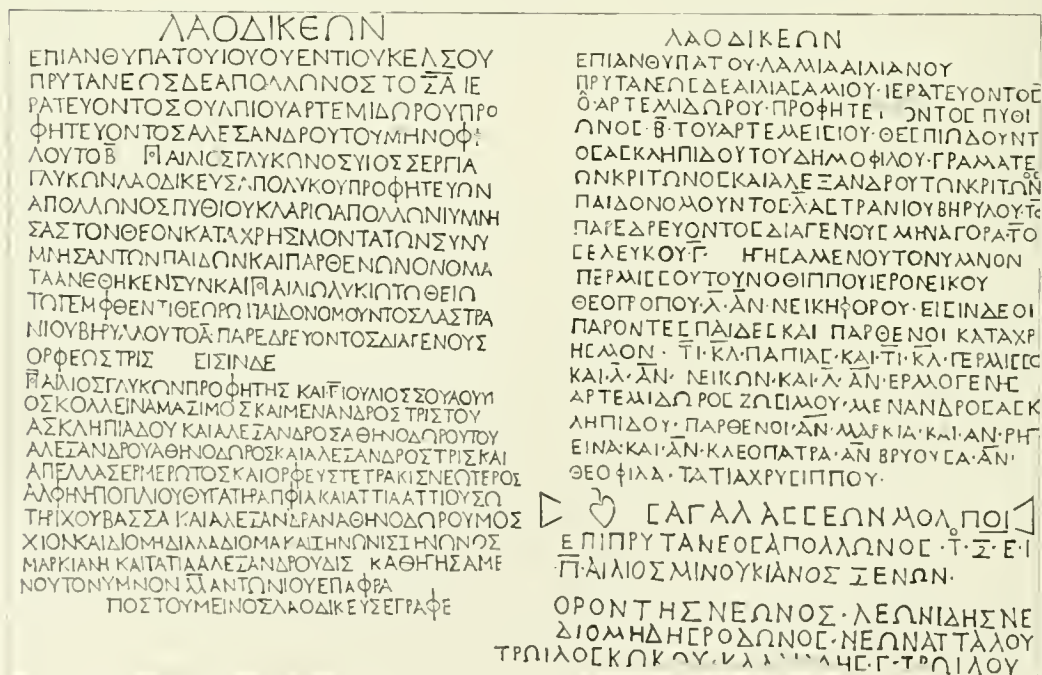 ΛΑΟΔΙΚΕΩΝ
ΕΠΙΑΝΘΥΠΑΤΟΥΙΟΥΟΥΕΝΤΙΟΥΚΕΛΣΟΥ
ΠΡΥΤΑΝΕΩΣΔΕΑΠΟΛΛΩΝΟΣΤΟΞΑΙΕ
ΡΑΤΕΥΟΝΤΟΣΟΥΛΠΙΟΥΑΡΤΕΜΙΔΩΡΟΥΠΡΟ
ΦΗΤΕΥΟΝΤΟΣΑΛΕΞΑΝΔΡΟΥΤΟΥΜΗΝΟΦΙ
ΛΟΥΤΟΒ ΠΑΙΛΙΟΣΓΛΥΚΩΝΟΣΥΙΟΣΣΕΡΓΙΑ
ΓΛΥΚΩΝΛΑΟΔΙΚΕΥΣΑΠΟΛΥΚΟΥΠΡΟΦΗΤΕΥΩΝ
ΑΠΟΛΛΩΝΟΣΠΥΘΙΟΥΚΛΑΡΙΩΑΠΟΛΛΩΝΙΥΜΝΗ
ΣΑΣΤΟΝΘΕΟΝΚΑΤΑΧΡΗΣΜΟΝΤΑΤΩΝΣΥΝΥ
ΜΝΗΣΑΝΤΩΝΠΑΙΔΩΝΚΑΙΠΑΡΘΕΝΩΝΟΝΟΜΑ
ΤΑΑΝΕΘΗΚΕΝΣΥΝΚΑΙΠΑΙΛΙΩΛΥΚΙΩΤΩΘΕΙΩ
ΤΩΠΕΜΦΘΕΝΤΙΘΕΩΡΩΠΑΙΔΟΝΟΜΟΥΝΤΟΣΛΑΣΤΡΑ
ΝΙΟΥΒΗΡΥΛΛΟΥΤΟΑΠΑΡΕΔΡΕΥΟΝΤΟΣΔΙΑΓΕΝΟΥΣ
ΟΡΦΕΩΣΤΡΙΣ ΕΙΣΙΝΔΕ
ΠΑΙΛΙΟΣΓΛΥΚΩΝΠΡΟΦΗΤΗΣ ΚΑΙΓΙΟΥΛΙΟΣΣΟΥΛΟΥΠΙ
ΟΣΚΟΛΛΕΙΝΑΜΑΞΙΜΟΣΚΑΙΜΕΝΑΝΔΡΟΣΤΡΙΣΤΟΥ
ΑΣΚΛΗΠΙΑΔΟΥΚΑΙΑΛΕΞΑΝΔΡΟΣΑΘΗΝΟΔΩΡΟΥΤΟΥ
ΑΛΕΞΑΝΔΡΟΥΑΘΗΝΟΔΩΡΟΣΚΑΙΑΛΕΞΑΝΔΡΟΣΤΡΙΣΚΑΙ
ΑΠΕΛΛΑΣΕΡΜΕΡΩΤΟΣΚΑΙΟΡΦΕΥΣΤΕΤΡΑΚΙΣΝΕΩΤΕΡΟΣ
ΑΛΦΗΝΗΠΟΠΛΙΟΥΘΥΓΑΤΗΡΑΠΦΙΑΚΑΙΑΤΤΙΑΑΤΤΙΟΥΣΩ
ΤΗΡΙΧΟΥΒΑΣΣΑΚΑΙΑΛΕΞΑΝΔΡΑΝΑΘΗΝΟΔΩΡΟΥΜΟΣ
ΧΙΟΝΚΑΙΔΙΟΜΗΔΙΛΛΑΔΙΟΜΑΚΑΙΖΗΝΩΝΙΣΖΗΝΩΝΟΣ
ΜΑΡΚΙΑΝΗΚΑΙΤΑΤΙΑΑΛΕΞΑΝΔΡΟΥΔΙΣ ΚΑΘΗΓΗΣΑΜΕ
ΝΟΥΤΟΝΥΜΝΟΝ ΛΛΑΝΤΩΝΙΟΥΕΠΑΦΡΑ
ΠΟΣΤΟΥΜΕΙΝΟΣΛΑΟΔΙΚΕΥΣΕΓΡΑΦΕ
ΛΑΟΔΙΚΕΩΝ
ΕΠΙΑΝΘΥΠΑΤΟΥ·ΛΑΜΙΑΑΙΛΙΑΝΟΥ
ΠΡΥΤΑΝΕΩϹΔΕΑΙΛΙΑϹΑΜΙΟΥ·ΙΕΡΑΤΕΥΟΝΤΟϹ
Ο·ΑΡΤΕΜΙΔΩΡΟΥ·ΠΡΟΦΗΤΕ ΟΝΤΟϹ ΠΥΘΙ
ΩΝΟϹ·Β·ΤΟΥΑΡΤΕΜΕΙϹΙΟΥ·ΘΕϹΠΙΩΔΟΥΝΤ
ΟϹΑϹΚΛΗΠΙΔΟΥΤΟΥΔΗΜΟΦΙΛΟΥ·ΓΡΑΜΑΤΕ
ΩΝΚΡΙΤΩΝΟϹΚΑΙΑΛΕΞΑΝΔΡΟΥΤΩΝΚΡΙΤΩΝΟϹ
ΠΑΙΔΟΝΟΜΟΥΝΤΟϹ·Λ·ΑϹΤΡΑΝΙΟΥΒΗΡΥΛΟΥ·ΤΟ
ΠΑΡΕΔΡΕΥΟΝΤΟϹΔΙΑΓΕΝΟΥϹ ΜΗΝΑΓΟΡΑ·ΤΟ
ϹΕΛΕΥΚΟΥ·Γ· ΗΓΗϹΑΜΕΝΟΥΤΟΝΥΜΝΟΝ
ΠΕΡΜΙϹϹΟΥΤΟΥΝΟΘΙΠΠΟΥΙΕΡΟΝΕΙΚΟΥ
ΘΕΟΠΡΟΠΟΥ·Λ·ΑΝ·ΝΕΙΚΗΦΟΡΟΥ·ΕΙϹΙΝΔΕΟΙ
ΠΑΡΟΝΤΕϹΠΑΙΔΕϹΚΑΙ ΠΑΡΘΕΝΟΙ ΚΑΤΑΧΡ
ΗϹΜΟΝ· ΤΙ·ΚΛ·ΠΑΠΙΑϹ·ΚΑΙ·ΤΙ·ΚΛ·ΠΕΡΜΙϹϹΟ
ΚΑΙ·Λ·ΑΝ· ΝΕΙΚΩΝ·ΚΑΙ·Λ·ΑΝ·ΕΡΜΟΓΕΝΗϹ
ΑΡΤΕΜΙΔΩΡΟϹ ΖΩϹΙΜΟΥ·ΜΕΝΑΝΔΡΟϹΑϹΚ
ΛΗΠΙΔΟΥ·ΠΑΡΘΕΝΟΙ·ΑΝ·ΜΑΡΚΙΑ·ΚΑΙ·ΑΝ·ΡΗΓ
ΕΙΝΑ·ΚΑΙ·ΑΝ·ΚΛΕΟΠΑΤΡΑ·ΑΝ ΒΡΥΟΥϹΑ·ΑΝ·
ΘΕΟΦΙΛΑ·ΤΑΤΙΑΧΡΥϹΙΠΠΟΥ·
ϹΑΓΑΛΑϹϹΕΩΝΜΟΛΠΟΙ
ΕΠΙΠΡΥΤΑΝΕΟϹΑΠΟΛΛΩΝΟϹ·Τ·Ξ·Ε·Ι
Π·ΑΙΛΙΟΣΜΙΝΟΥΚΙΑΝΟΣ ΞΕΝΩΝ·
ΟΡΟΝΤΗΣΝΕΩΝΟΣ·ΛΕΩΝΙΔΗΣΝΕ
ΔΙΟΜΗΔΗϹΡΟΔΩΝΟϹ·ΝΕΩΝΑΤΤΑΛΟΥ
ΤΡΩΙΛΟϹΚΩΚΟΥ· ΗϹ·Γ·ΤΡΩΙΛΟΥ